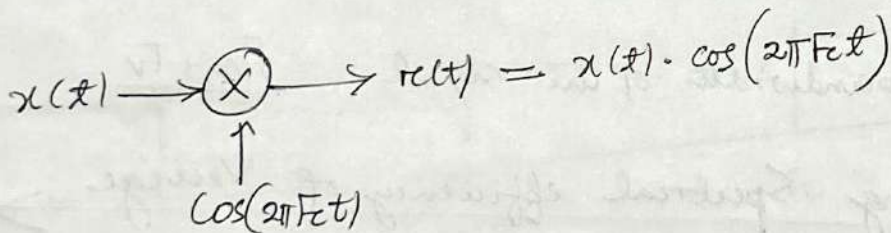 x(t) → X → rc(t) = x(t) · cos(2πFct)
Cos(2πFct)